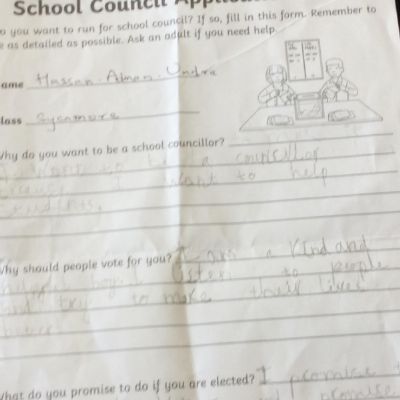 School Council
o you want to run for school council? If so, fill in this form. Remember to
e as detailed as possible. Ask an adult if you need help.
ame Hassan. Adnan. Undra
lass Sycamore
Why do you want to be a school councillor?
to be a councillor
want to help
students,
Why should people vote for you? I am a kind and
helpful boy. I listen to people
and try to make their lives
better
What do you promise to do if you are elected? I promise
promise